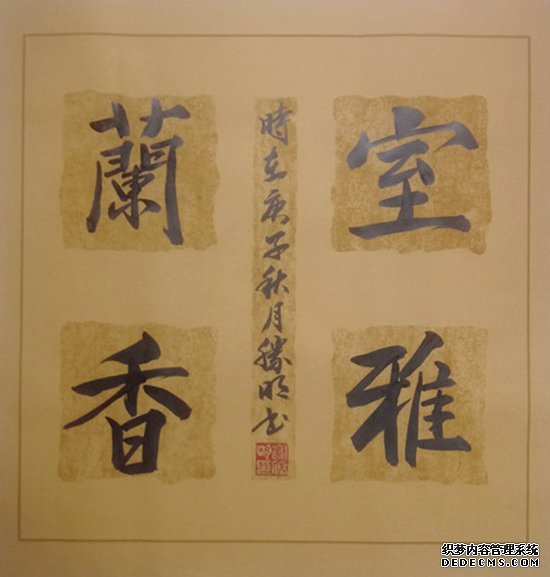 室雅
蘭香
時在庚子秋月勝明书
织梦内容管理系统
DEDECMS.COM